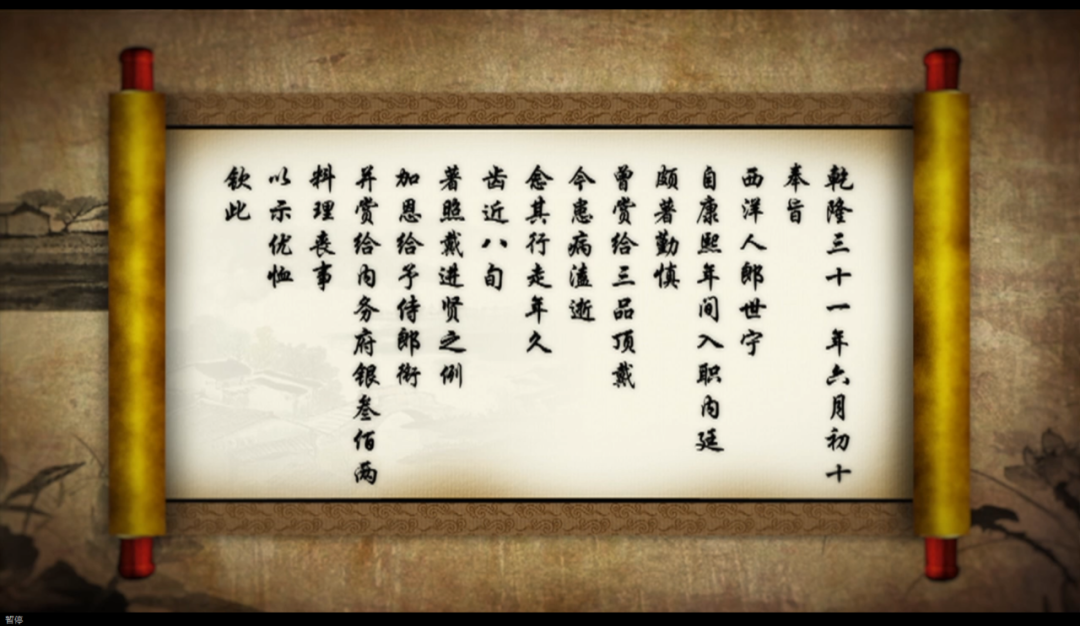 乾隆三十一年六月初十
奉旨
西洋人郎世宁
自康熙年间入职内廷
颇著勤慎
曾赏给三品顶戴
今患病溘逝
念其行走年久
齿近八旬
著照戴进贤之例
加恩给予侍郎衔
并赏给内务府银叁佰两
料理丧事
以示优恤
钦此
暂停